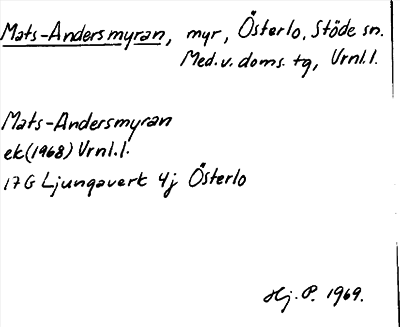 Mats-Andersmyran, myr, Österlo, Stöde sn.
Med.v. doms. tg, Vrnl.l.
Mats-Andersmyran
ek(1968) Vrnl.l.
17G Ljungaverk 4j Österlo
Hj. P. 1969.